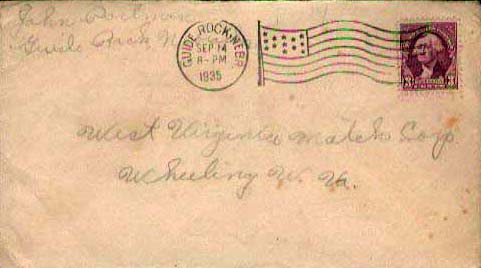 John
Guide Rock N
GUIDE ROCK, NEBR.
SEP 14
8-PM
1935
3 3
West Virginia Match Corp
Wheeling W. Va.